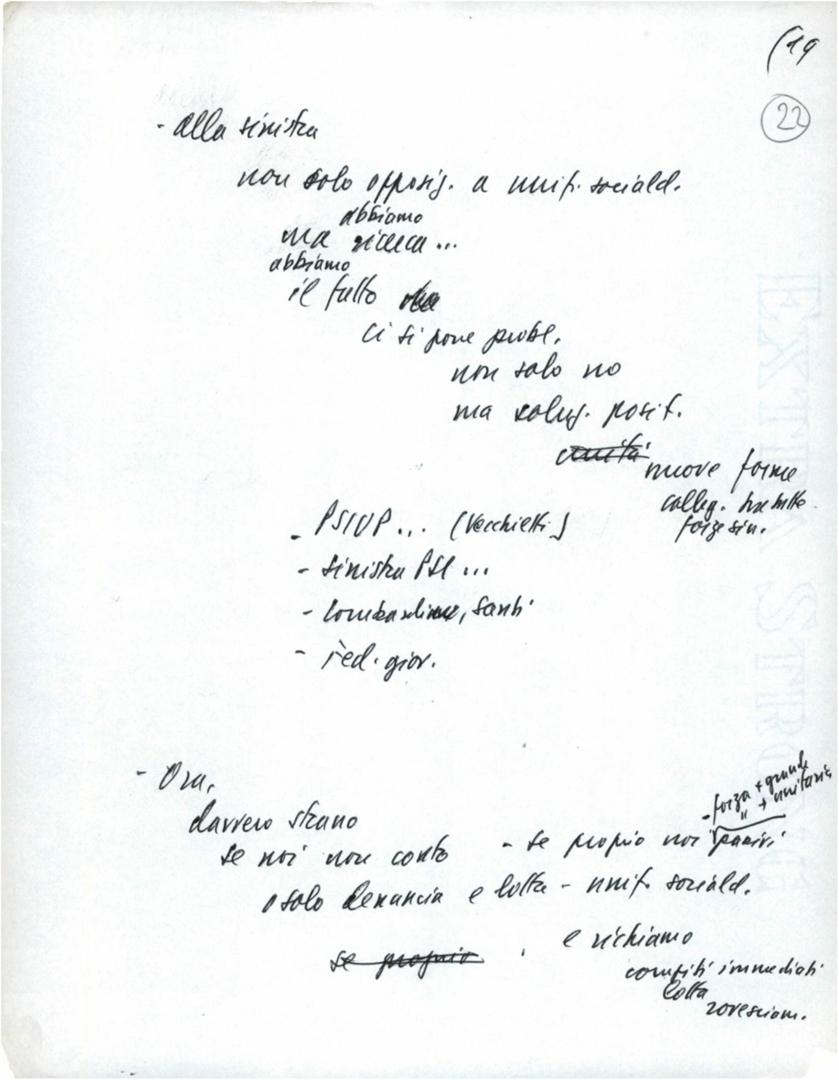 (19
22
- alla sinistra
non solo opposiz. a unif. sociald.
abbiamo
ma ricerca...
abbiamo
il fatto
ci si pone probl.
non solo no
ma soluz. posit.
unità
nuove forme
colleg. tra tutte
forze sin.
- PSIUP... (Vecchietti)
- sinistra PSI...
- lombardiani, Santi
- fed. giov.
- Ora,
davvero strano
- forza + grande
" + unitaria
se noi non conto - se proprio noi passivi
o solo denuncia e lotta - unif. sociald.
se proprio
e richiamo
compiti immediati
lotta
rovesciam.